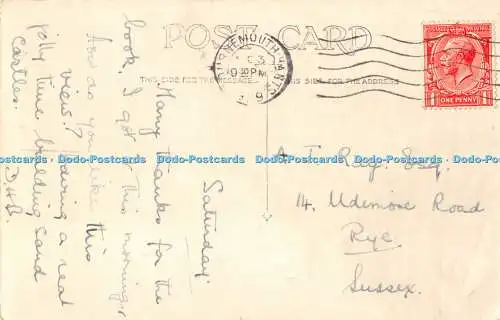 POST CARD
BOURNEMOUTH HANTS
PM
THIS SIDE FOR THE
THIS SIDE FOR THE ADDRESS
ONE PENNY
Saturday
Many thanks for the
book. I got it this morning.
How do you like this
view? Having a real
jolly time building sand
castles.
D.H.B.
Ray. Esq.
14, Udimore Road
Rye,
Sussex.
Dodo-Postcards Dodo-Postcards Dodo-Postcards Dodo-Postcards Dodo-Postcards Dodo-Postcards